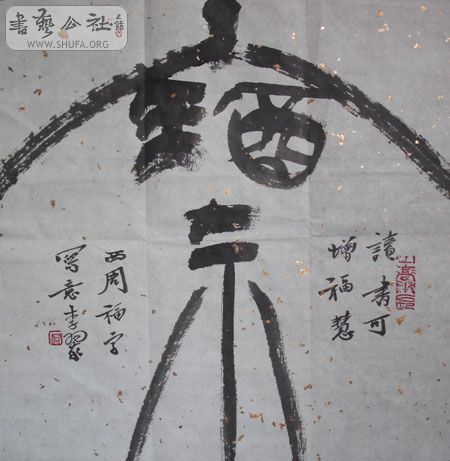 書藝公社
WWW.SHUFA.ORG
福
山高水長
讀書可
增福慧
西周福字
寫意李